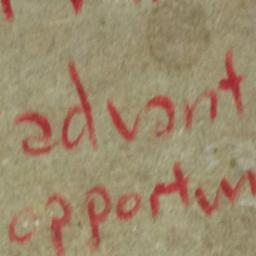 advant
opportun